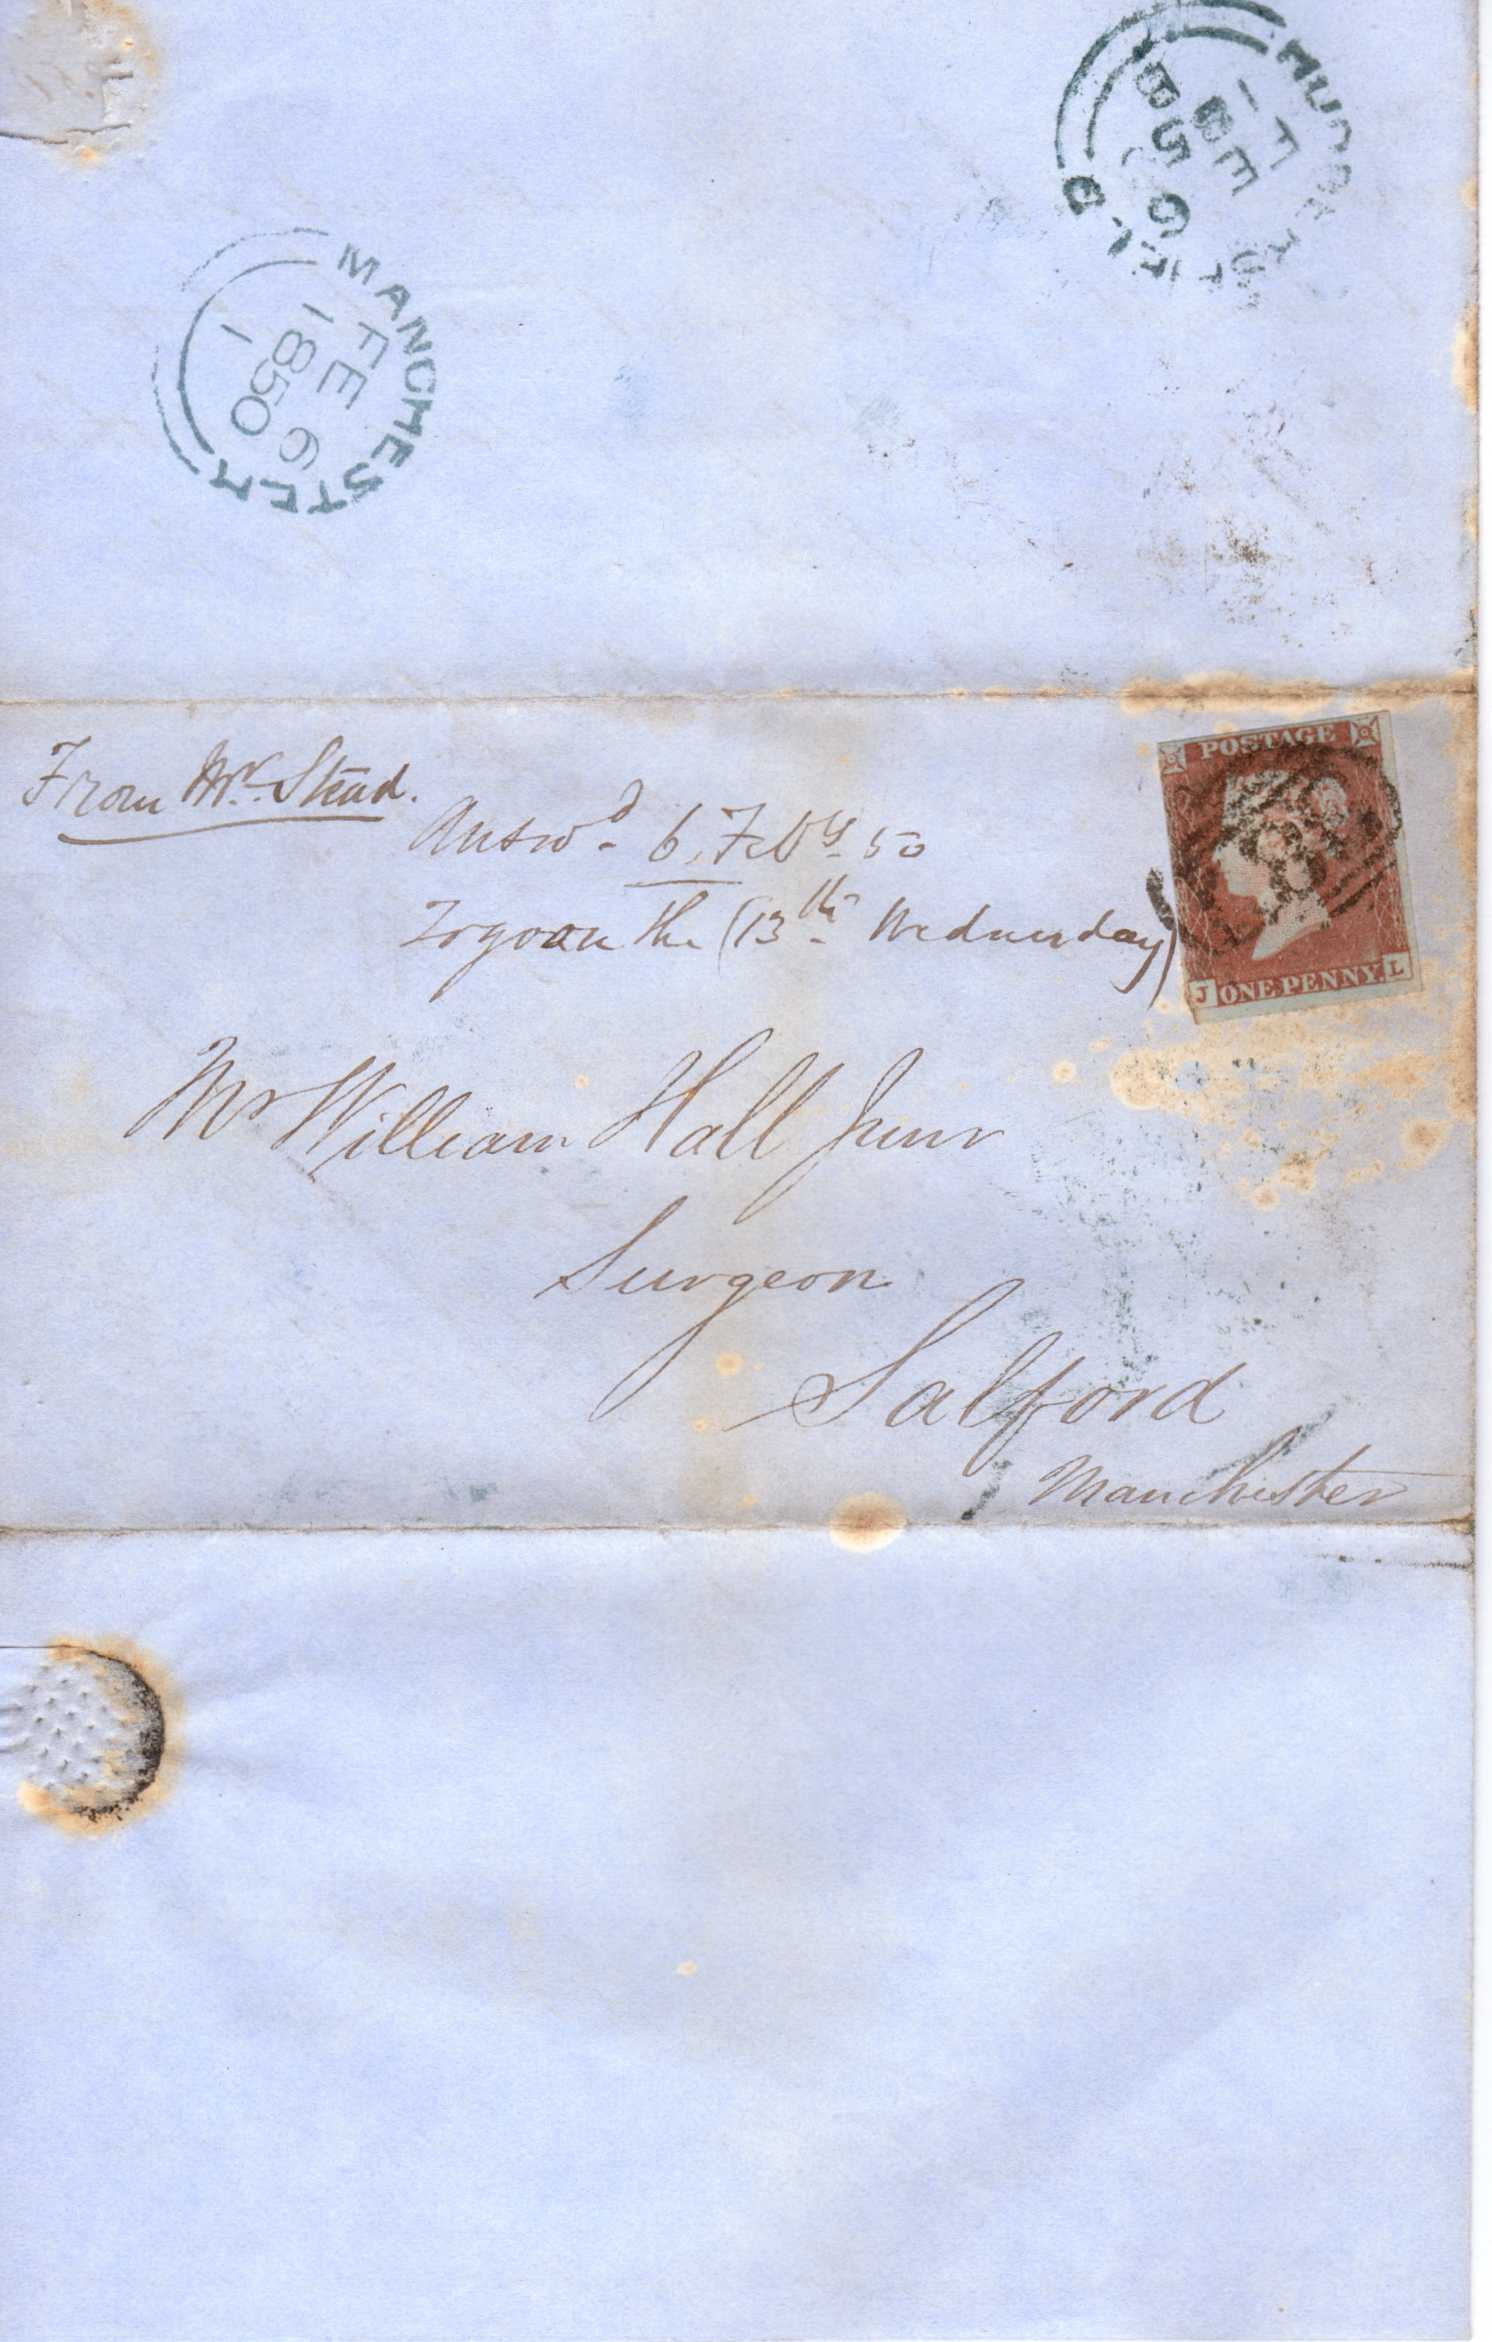 HUDDERSFIELD
FE
1850
MANCHESTER
FE 6
1850
1
From Mr. Stead.
Answd. 6, Feby. 50
To go on the (13th. Wednesday)
POSTAGE
J ONE PENNY. L
Mr William Hall Junr
Surgeon
Salford
Manchester